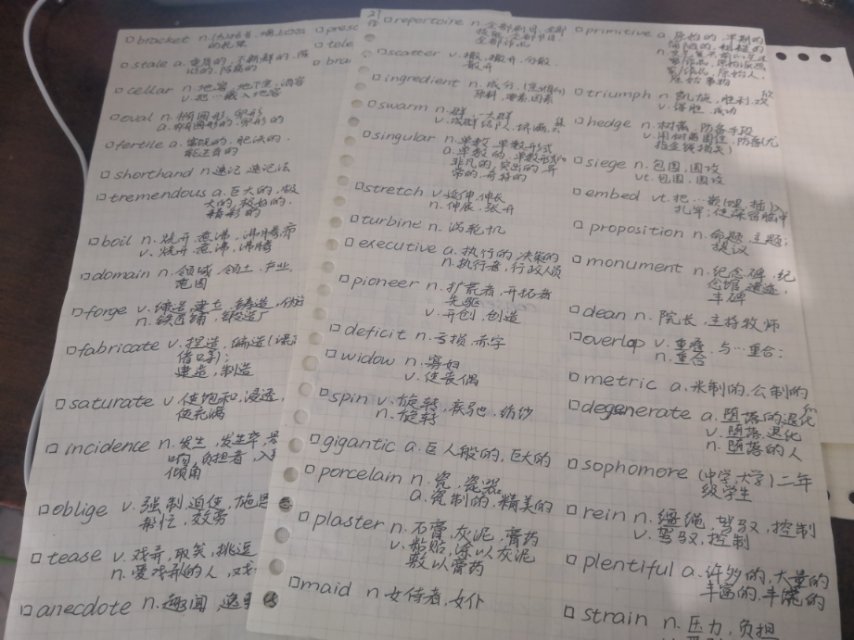 bracket n.
的托架
stale a. 不新鲜的
cellar n. 地窖, 地下室, 酒窖
v. 把…藏入地窖
oval n. 椭圆形, 卵形
a. 椭圆形的, 卵形的
fertile a. 富饶的, 肥沃的,
能生育的
shorthand n. 速记, 速记法
tremendous a. 巨大的, 极
大的, 极好的,
精彩的
boil n. 煮沸, 沸腾
v. 烧开, 煮沸, 沸腾
domain n. 领域, 领土, 产业,
地图
forge v. 铸造
n. 铁匠铺, 锻造厂
fabricate v. 捏造, 编造
借口等);
建造, 制造
saturate v. 使饱和, 浸透,
使充满
incidence n. 发生, 发生率, 影
响, 负担者, 入
倾角
oblige v. 强制, 迫使, 施恩
帮忙, 效劳
tease v. 戏弄, 取笑, 挑逗
n. 爱戏弄的人,
anecdote n. 趣闻, 逸
presc
tole
bra
21
repertoire n. 全部剧目, 全部
技能, 全部节目
全部作品
scatter v. 撒, 撒开, 分散,
散开
ingredient n. 成分
原料, 要素, 因素
swarm n. 群, 一大群
v. 成群结队
singular n. 单数, 单数形式
a. 单数的, 单数形式的
非凡的, 突出的, 异
常的, 奇特的
stretch v. 延伸, 伸长
n. 伸展, 张开
turbine n. 涡轮机
executive a. 执行的, 决策的
n. 执行者, 行政人员
pioneer n. 扩荒者, 开拓者
先驱
v. 开创, 创造
deficit n. 亏损, 赤字
widow n. 寡妇
v. 使丧偶
spin v. 旋转, 疾驰, 纺纱
n. 旋转
gigantic a. 巨人般的, 巨大的
porcelain n. 瓷, 瓷器
a. 瓷制的, 精美的
plaster n. 石膏, 灰泥, 膏药
v. 粘贴, 涂以灰泥
敷以膏药
maid n. 女侍者, 女仆
primitive a. 原始的, 早期的
原始人,
原始事物
triumph n. 凯旋, 胜利, 欢
v. 得胜, 成功
hedge n. 树篱, 防备手段
v. 用树篱围住, 防备(尤
指金钱损失)
siege n. 包围, 围攻
vt. 包围, 围攻
embed vt. 把…嵌(埋, 插)入
扎牢; 使深留脑中
proposition n. 命题, 主题;
提议
monument n. 纪念碑, 纪
念馆, 遗迹,
丰碑
dean n. 院长, 主持牧师
overlap v. 重叠, 与…重合;
n. 重合
metric a. 米制的, 公制的
degenerate a. 堕落的, 退化的
v. 堕落, 退化
n. 堕落的人
sophomore (中学, 大学)二年
级学生
rein n. 缰绳, 驾驭, 控制
v. 驾驭, 控制
plentiful a. 许多的, 大量的
丰富的, 丰饶的
strain n. 压力, 负担